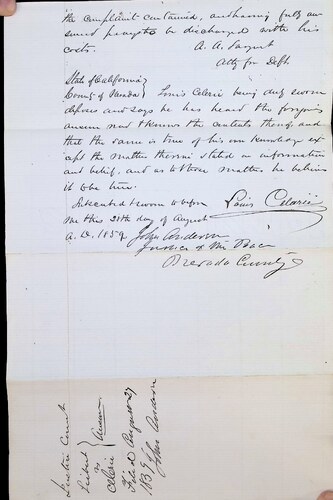 the complaint contained, and having fully an
swered prays to be discharged with his
costs.
A. A. Sargent
Atty for Deft
State of California }
County of Nevada } Louis Celerie being duly sworn
deposes and says he has heard the foregoing
answer and knows the contents thereof, and
that the same is true of his own knowledge ex
cept the matters therein stated on information
and belief, and as to those matters he believes
it to be true.
Subscribed & sworn to before
Louis Celerié
me this 25th day of August
A. D. 1859
John Anderson
Justice of the Peace
Nevada County
Justice Court
vs
Celerie
} Answer
Filed August 27
1859
John Anderson